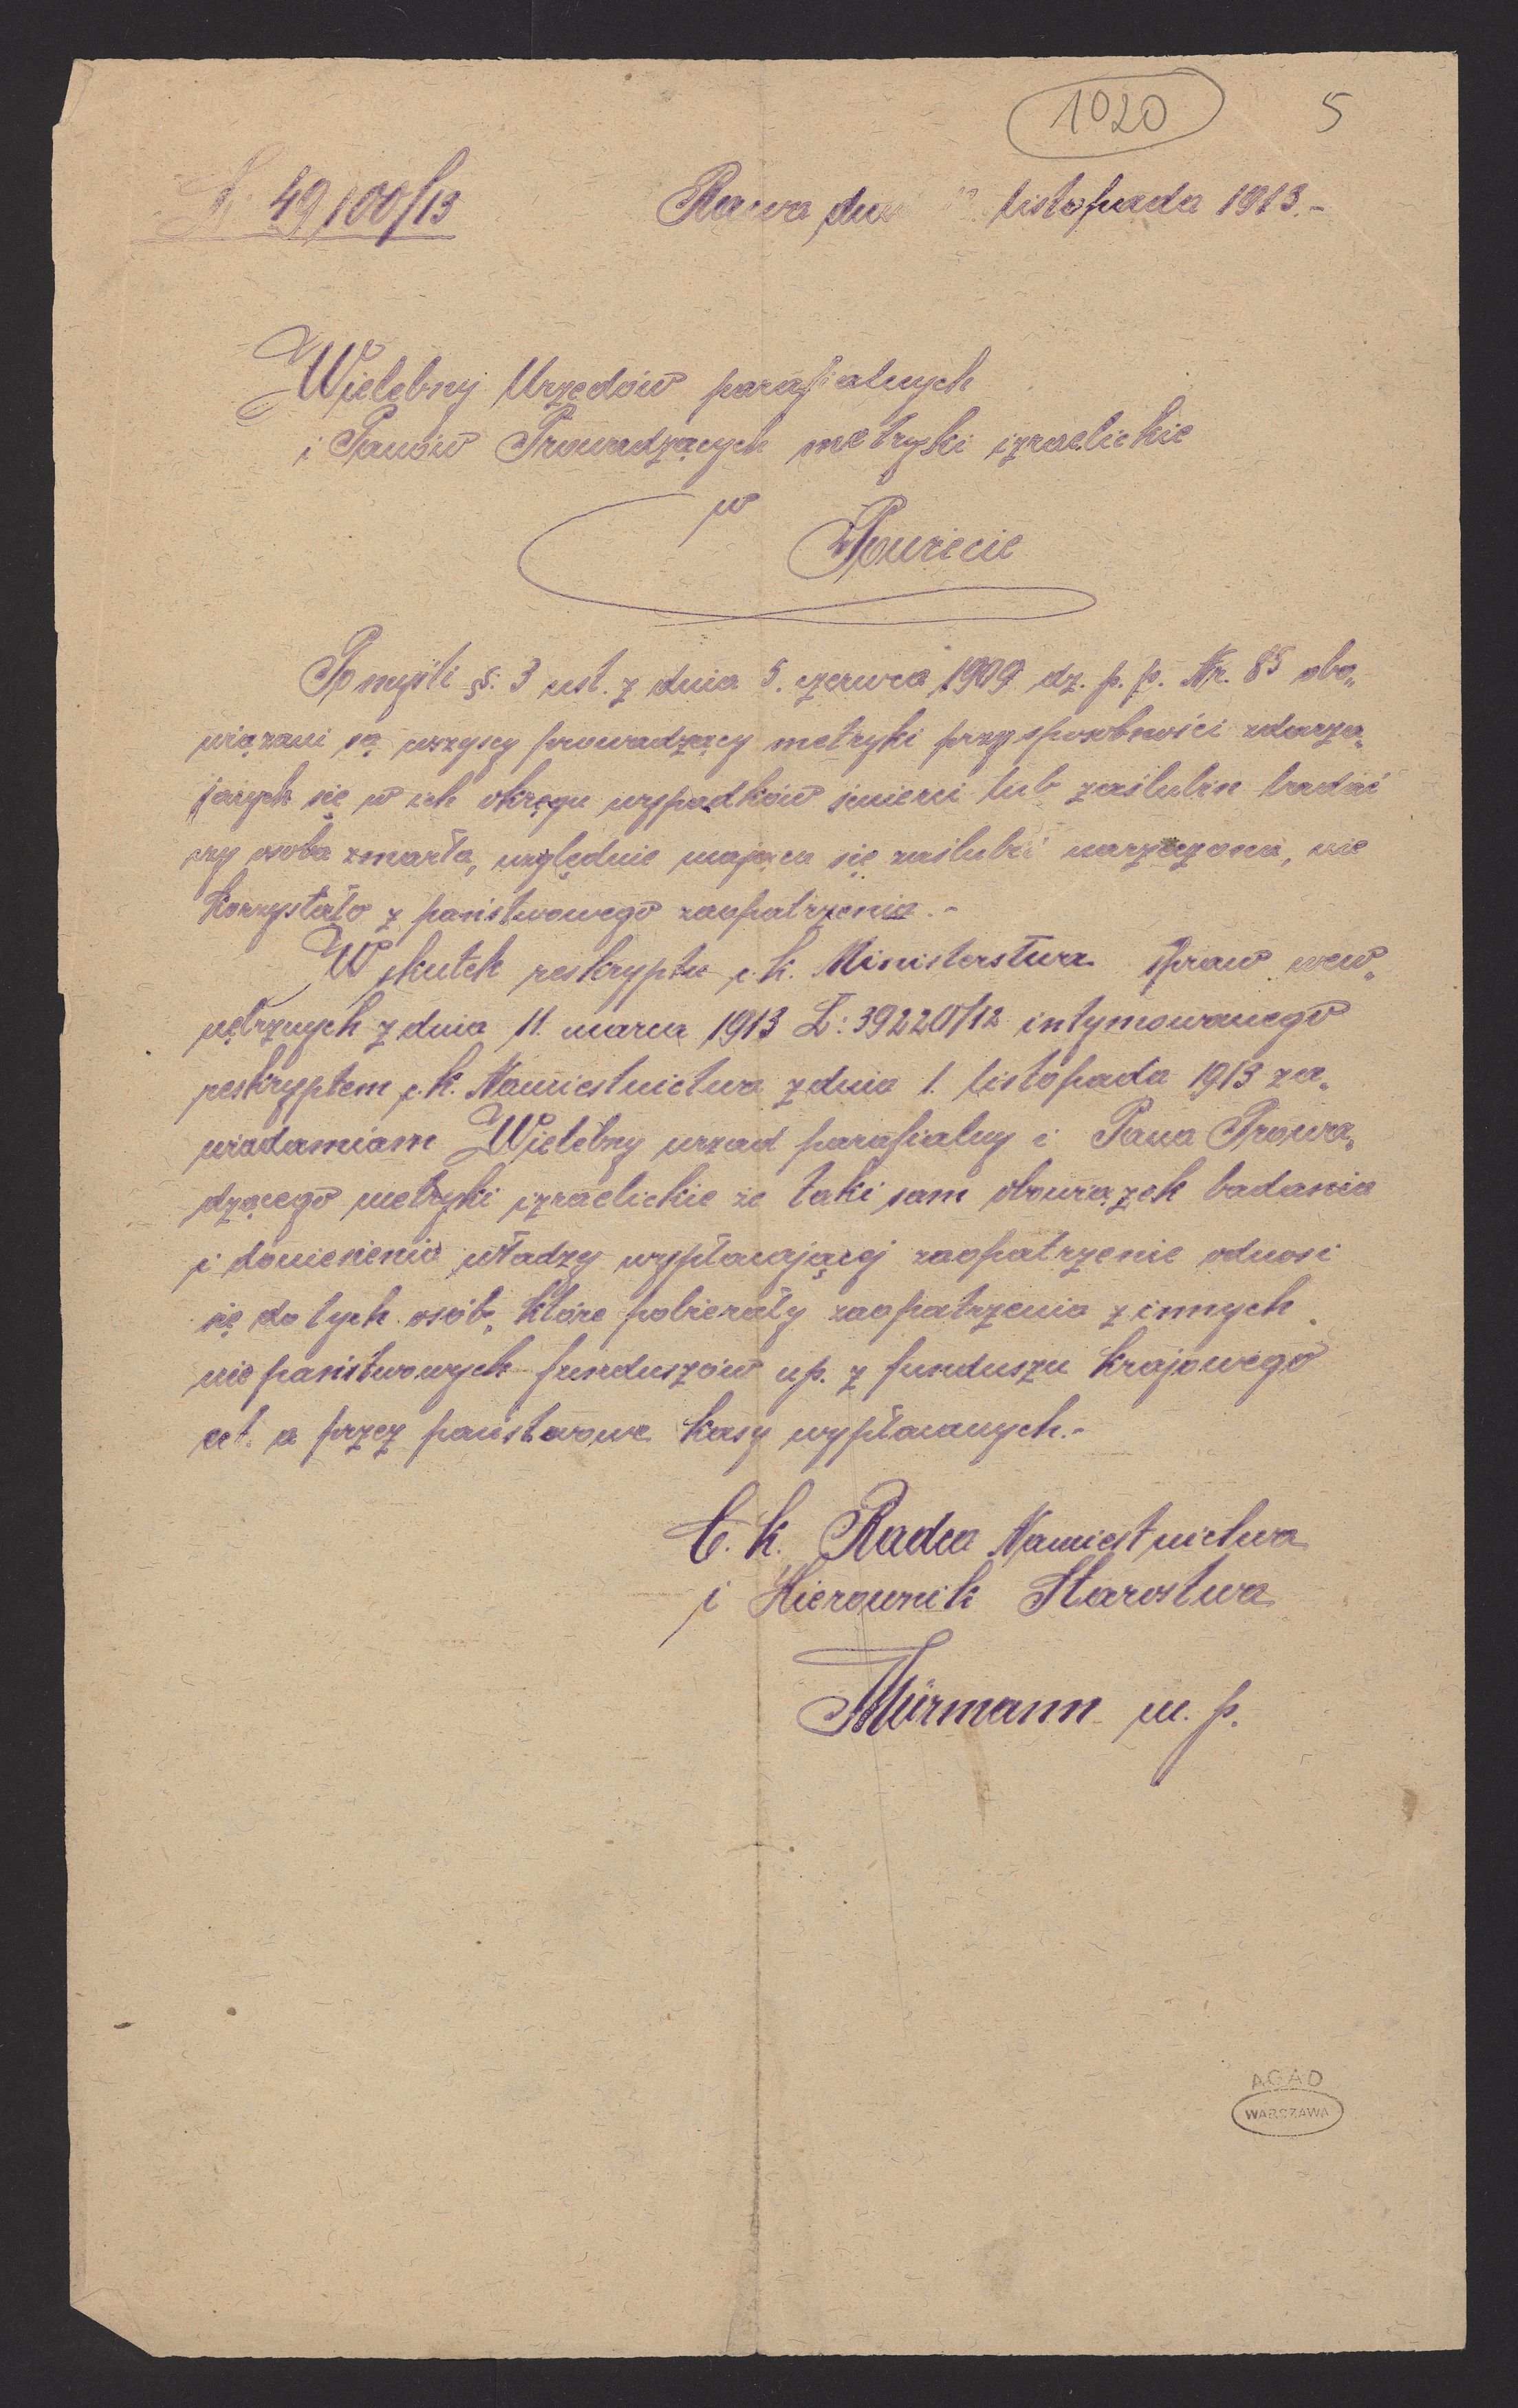 1020 5
L. 49100/13 Rawa dnia listopada 1913.-
Wielebny Urzędów parafialnych
i Panów Prowadzących metryki izraelickie
w
Powiecie
Po myśli §. 3 ust. z dnia 5. czerwca 1909 dz. p. p. Nr. 85 obo„
wiązani są wszyscy prowadzący metryki przy sposobności zdarza„
jących się w ich okręgu wypadków śmierci lub zaślubin badać
czy osoba zmarła, względnie mająca się zaślubić narzeczona, nie
korzystała z państwowego zaopatrzenia.-
W skutek reskryptu c. k. Ministerstwa spraw wew„
nętrznych z dnia 11. marca 1913 L: 39220/12 intymowanego
reskryptem c. k. Namiestnictwa z dnia 1. listopada 1913 za„
wiadamiam Wielebny urząd parafialny i Pana Prowa„
dzącego metryki izraelickie że taki sam obowiązek badania
i doniesienia władzy wypłacającej zaopatrzenie odnosi
się do tych osób, które pobierały zaopatrzenia z innych
nie państwowych funduszów np. z funduszu krajowego
ect. a przez państwowe kasy wypłacanych.-
C. k. Radca Namiestnictwa
i Kierownik Starostwa
Mürmann m. p.
AGAD
WARSZAWA